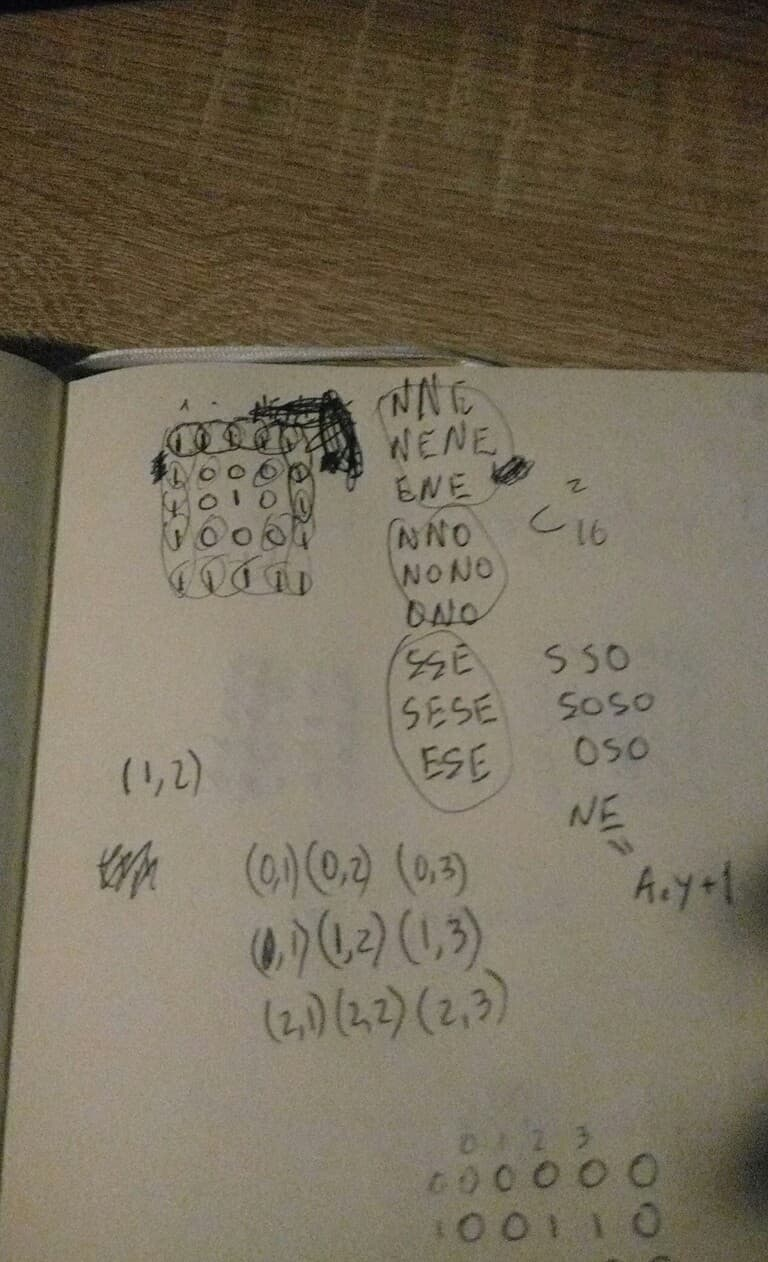 1 1 1 1 1
1 0 0 0 1
1 0 1 0 1
1 0 0 0 1
1 1 1 1 1
NNE
NENE
ENE
C 2 16
NNO
NONO
ONO
SSE SSO
SESE SOSO
ESE OSO
(1,2)
NE
A.y+1
(0,1) (0,2) (0,3)
(1,2) (1,3)
(2,1) (2,2) (2,3)
0 1 2 3
0 0 0 0 0 0
1 0 0 1 1 0